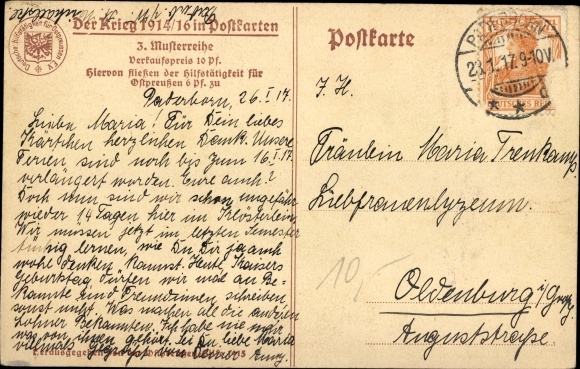 Der Krieg 1914/16 in Postkarten
3. Musterreihe
Verkaufspreis 10 Pf.
Hiervon fließen der Hilfstätigkeit für
Ostpreußen 6 Pf. zu
Paderborn, 26. I. 17.
Liebe Maria! Für Dein liebes
Kärtchen herzlichen Dank. Unsere
Ferien sind noch bis zum 16. I. 17.
verlängert worden. Eure auch?
Doch nun sind wir schon ungefähr
wieder 14 Tagen hier im Klösterlein.
Wir müssen jetzt im letzten Semester
tüchtig lernen, wie Du Dir ja auch
wohl denken kannst. Heute, Kaisers
Geburtstag, dürfen wir mal an Be-
kannte und Freundinnen schreiben,
sonst nicht. Was machen all die andern
Lohner Bekannten. Ich habe nie mehr
was von ihnen gehört. Sei Du, liebe Maria
vielmals gegrüßt von Deiner
Postkarte
PADERBORN
23.1.17. 9-10V.
DEUTSCHES REICH
J. H.
Fräulein Maria Trenkamp
Liebfrauenlyzeum.
10,-
Oldenburg i/Grzg.
Auguststraße.